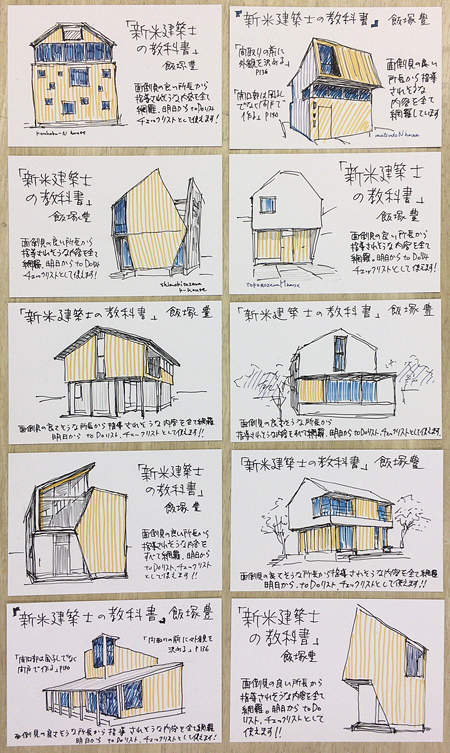 「新米建築士
の教科書」
飯塚豊
面倒見の良い所長から
指導されそうな内容を全て
網羅。明日からto Doリスト
チェックリストとして使えます!
N house
『新米建築士の教科書』 飯塚豊
「間取りの前に
外観を決める。」
P136
「開口部は
でなく「府戸」で
作る」P150
面倒見の良い
所長から指導
されそうな
内容を全て
網羅しています
matsudo N house
「新米建築士
の教科書」
飯塚豊
面倒見の良い所長から
指導されそうな内容を全て
網羅。明日からto Do
チェックリストとして使えます!
shimokitazawa
house
「新米建築士
の教科書」
飯塚豊
面倒見の良い所長から
指導されそうな内容を全て
網羅。明日からto Do
チェックリストとして使えます!
tokorozawa house
「新米建築士の教科書」 飯塚豊
面倒見の良さそうな所長から指導されそうな内容を全て網羅
明日から to Doリスト、チェックリストとして使えます!!
「新米建築士の教科書」 飯塚豊
面倒見の良さそうな所長から
指導されそうな内容をすべて網羅、明日からto Doリスト、チェックリストとして使えます!!
「新米建築士
の教科書」
飯塚豊
面倒見の良い所長から
指導されそうな内容を
すべて網羅、明日から
to Doリスト、チェックリスト
として使えます!!
「新米建築士の教科書」 飯塚豊
面倒見の良さそうな所長から指導されそうな内容を全て
網羅。明日からto Doリスト、チェックリストとして使えます!
『新米建築士の教科書』 飯塚豊
「間取りの前に外観を
決める」P136
で作る」P150
面倒見の良さそうな所長から指導されそうな内容を全て網羅
明日から to Doリスト、チェックリストとして使えます!
「新米建築士
の教科書」
飯塚豊
面倒見の良い所長から
指導されそうな内容を全て
網羅。明日からto Do
リスト、チェックリストとして
使えます!